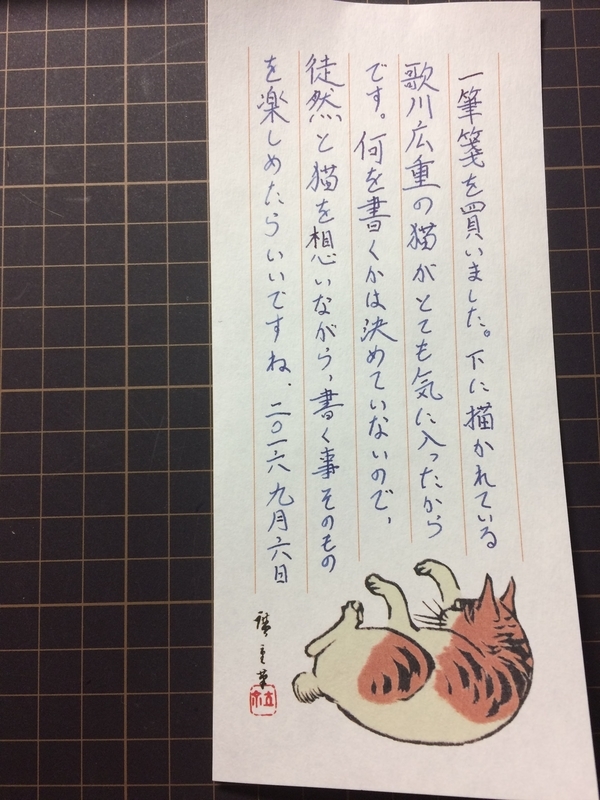 一筆箋を買いました。下に描かれている
歌川広重の猫がとても気に入ったから
です。何を書くかは決めていないので、
徒然と猫を想いながら、書く事そのもの
を楽しめたらいいですね、二〇一六 九月六日
廣重筆